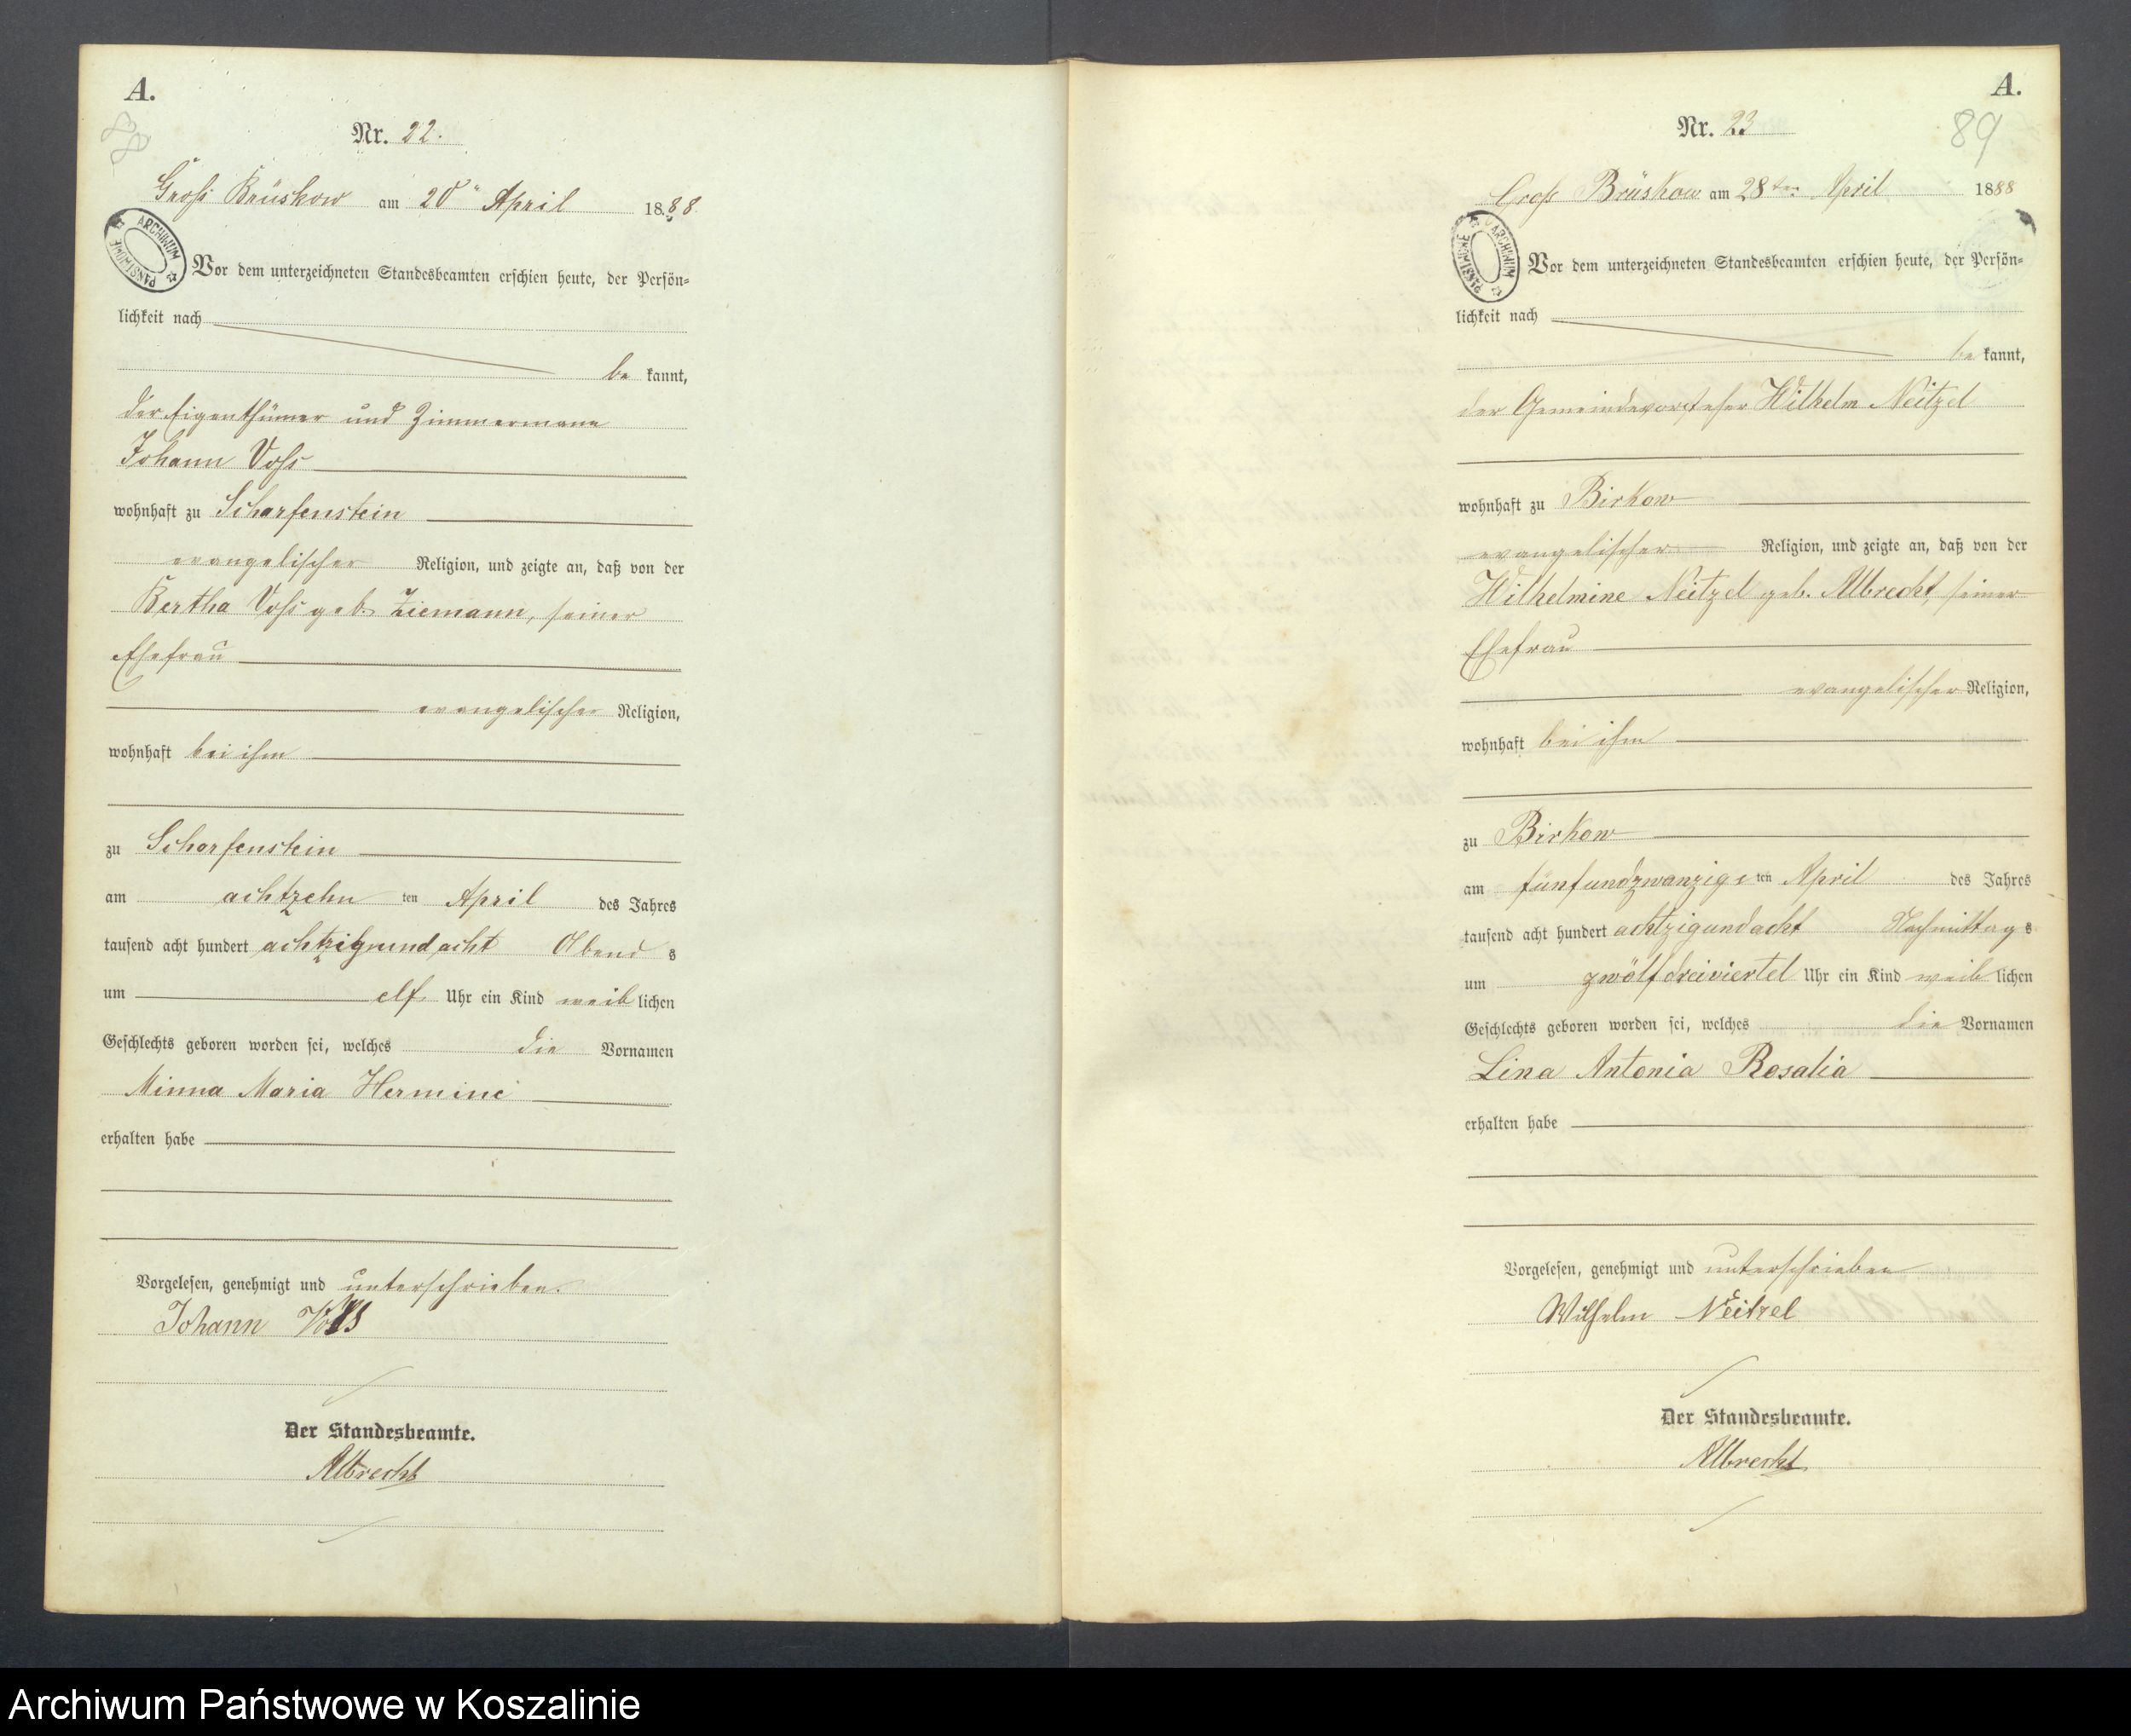 A.
88
Nr. 22.
Groß Brüskow am 20ten April 1888
ARCHIWUM PAŃSTWOWE
Vor dem unterzeichneten Standesbeamten erschien heute, der Persön-
lichkeit nach
be kannt,
der Eigenthümer und Zimmermann
Johann Voß
wohnhaft zu Scharfenstein
evangelischer Religion, und zeigte an, daß von der
Bertha Voß geb. Ziemann, seiner
Ehefrau
evangelischer Religion,
wohnhaft bei ihm
zu Scharfenstein
am achtzehn ten April des Jahres
tausend acht hundert achtzigundacht Abend s
um elf Uhr ein Kind weib lichen
Geschlechts geboren worden sei, welches die Vornamen
Minna Maria Hermine
erhalten habe
Vorgelesen, genehmigt und unterschrieben.
Johann Voß
Der Standesbeamte.
Albrecht
A.
89
Nr. 23
Groß Brüskow am 28ten April 1888
ARCHIWUM PAŃSTWOWE
Vor dem unterzeichneten Standesbeamten erschien heute, der Persön-
lichkeit nach
be kannt,
der Gemeindevorsteher Wilhelm Neitzel
wohnhaft zu Birkow
evangelischer Religion, und zeigte an, daß von der
Wilhelmine Neitzel geb. Albrecht, seiner
Ehefrau
evangelischer Religion,
wohnhaft bei ihm
zu Birkow
am fünfundzwanzigs ten April des Jahres
tausend acht hundert achtzigundacht Nachmittag s
um zwölf dreiviertel Uhr ein Kind weib lichen
Geschlechts geboren worden sei, welches die Vornamen
Lina Antonia Rosalia
erhalten habe
Vorgelesen, genehmigt und unterschrieben
Wilhelm Neitzel
Der Standesbeamte.
Albrecht
Archiwum Państwowe w Koszalinie